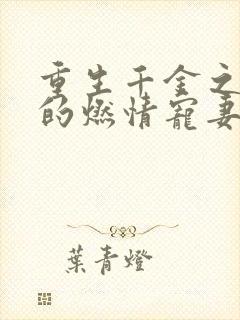 重生千金之
的燃情寵妻
葉青燈